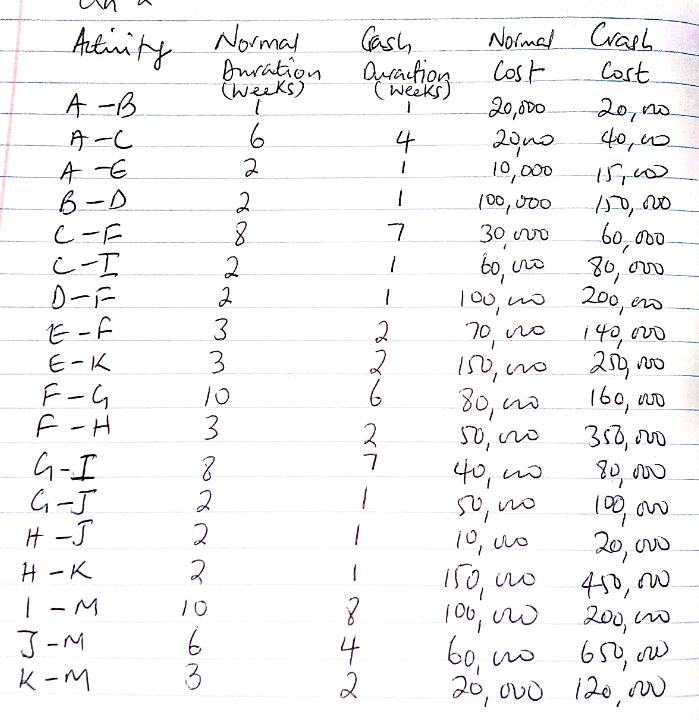 Activity Normal Duration (weeks) Crash Duration (weeks) Normal Cost Crash Cost
A-B 1 1 20,000 20,000
A-C 6 4 20,000 40,000
A-E 2 1 10,000 15,000
B-D 2 1 100,000 150,000
C-F 8 7 30,000 60,000
C-I 2 1 60,000 80,000
D-F 2 1 100,000 200,000
E-F 3 2 70,000 140,000
E-K 3 2 150,000 250,000
F-G 10 6 80,000 160,000
F-H 3 2 50,000 350,000
G-I 8 7 40,000 80,000
G-J 2 1 50,000 100,000
H-J 2 1 10,000 20,000
H-K 2 1 150,000 450,000
I-M 10 8 100,000 200,000
J-M 6 4 60,000 650,000
K-M 3 2 20,000 120,000